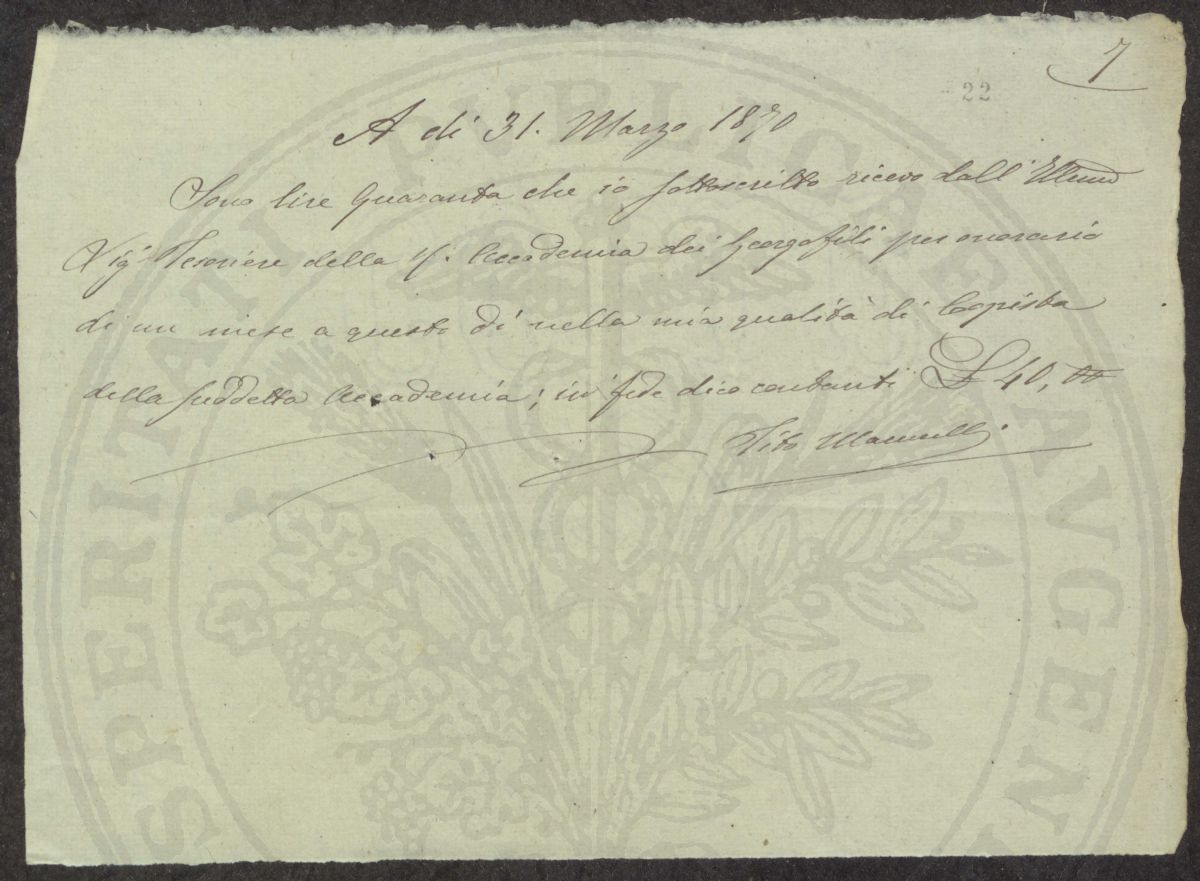 7
22
A dì 31. Marzo 1870
Sono lire Quaranta che io sottoscritto ricevo dall' Illmo
Sigr Tesoriere della R. Accademia dei Georgofili per onorario
di un mese a questo dì nella mia qualità di Copista
della suddetta Accademia; in fede dico contanti £ 40,00
Tito
PROSPERITATI PVBLICAE AVGENDAE